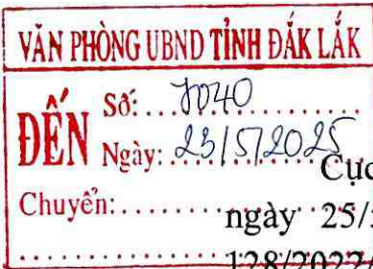 VĂN PHÒNG UBND TỈNH ĐẮK LẮK
ĐẾN
Số: ...7040...
Ngày: 23/5/2025
Cục
Chuyển:
ngày 25/
128/2022/